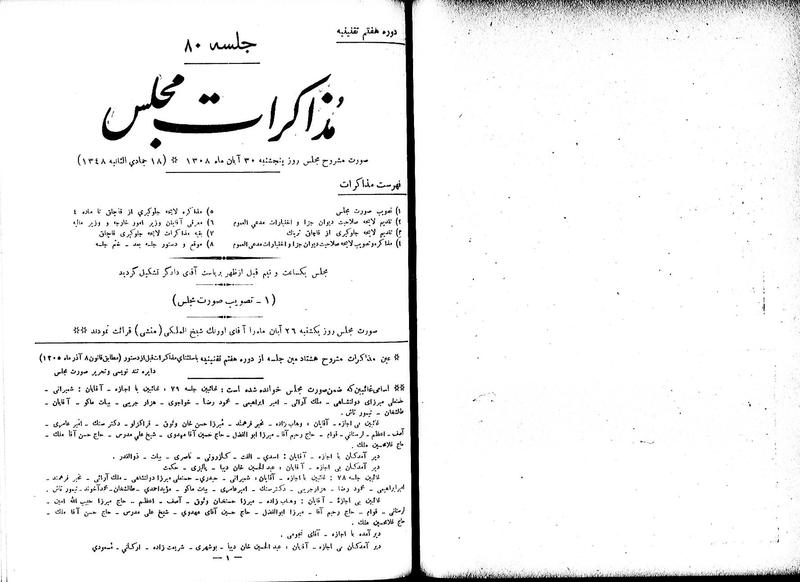 دوره هفتم تقنینیه
جلسه ۸۰
مذاکرات مجلس
صورت مشروح مجلس روز پنجشنبه ۳۰ آبان ماه ۱۳۰۸ * (۱۸ جمادی الثانیه ۱۳۴۸)
فهرست مذاکرات
۱) تصویب صورت مجلس
۲) تقدیم لایحه صلاحیت دیوان جزا و اختیارات مدعی العموم
۳) تقدیم لایحه جلوگیری از قاچاق تریاك
۴) مذاکره و تصویب لایحه صلاحیت دیوان جزا و اختیارات مدعی العموم
۵) مذاکره لایحه جلوگیری از قاچاق تا ماده ٤
۶) معرفی آقایان وزیر امور خارجه و وزیر مالیه
۷) بقیه مذاکرات لایحه جلوگیری قاچاق
۸) موقع و دستور جلسه بعد - ختم جلسه
مجلس یکساعت و نیم قبل از ظهر بریاست آقای دادگر تشکیل گردید
(۱ - تصویب صورت مجلس)
صورت مجلس روز یکشنبه ۲۶ آبان ماه را آقای اورنك شیخ الملکی (منشی) قرائت نمودند **
* عین مذاکرات مشروح هشتاد مین جلسه از دوره هفتم تقنینیه باستثنای مذاکرات قبل از دستور (مطابق قانون ۸ آذر ماه ۱۳۰۵)
دایره تند نویسی و تحریر صورت مجلس
** اسامی غائبین که ضمن صورت مجلس خوانده شده است: غائبین جلسه ۷۹ : غائبین با اجازه - آقایان : شیرازی -
حسنعلی میرزای دولتشاهی - ملك آرائی - امیر ابراهیمی - محمود رضا - خواجوی - هزار جریبی - بیات ماکو - آقایان -
طالشخان - تیمور تاش .
غائبین بی اجازه - آقایان : وهاب زاده - غیر فرهمند - میرزا حسن خان وثوق - قراگزلو - دکتر سنك - امیر عامری -
آصف - اعظم - ارمستانی - قوام - حاج رحیم آقا - میرزا ابوالفضل - حاج حسین آقا مهدوی - شیخ علی مدرس - حاج حسن آقا ملك
حاج غلامحسین ملك .
دیر آمدگان با اجازه - آقایان : اسدی - الفت - کازرونی - ناصری - بیات - ذوالقدر .
دیر آمدگان بی اجازه - آقایان : عبدالحسین خان دیبا - پالیزی - حکمت
غائبین جلسه ۷۸ : غائبین با اجازه - آقایان : شیرازی - حیدری - حسنعلی میرزا دولتشاهی - ملك آرائی - غیر فرهمند -
امیر ابراهیمی - محمود رضا - هزار جریبی - دکتر سنك - امیر عامری - بیات ماکو - مؤید احمدی - طالشخان - محمد آخوند - تیمور تاش
غائبین بی اجازه - آقایان : وهاب زاده - میرزا حسنخان وثوق - آصف - اعظم - حاج میرزا حبیب الله امین -
ارمستانی - قوام - حاج رحیم آقا - میرزا ابوالفضل - حاج حسین آقای مهدوی - شیخ علی مدرس - حاج حسن آقا ملك -
حاج غلامحسین ملك .
دیر آمدگان با اجازه - آقای نجومی .
دیر آمدگان بی اجازه - آقایان : عبد الحسین خان دیبا - بوشهری - شریعت زاده - ارکانی - مسعودی
— ۱ —